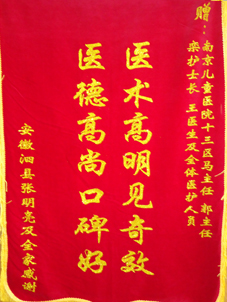 赠:
南京儿童医院十三区马主任 郭主任
栾护士长 王医生及全体医护人员
医术高明见奇效
医德高尚口碑好
安徽泗县张明亮及全家感谢